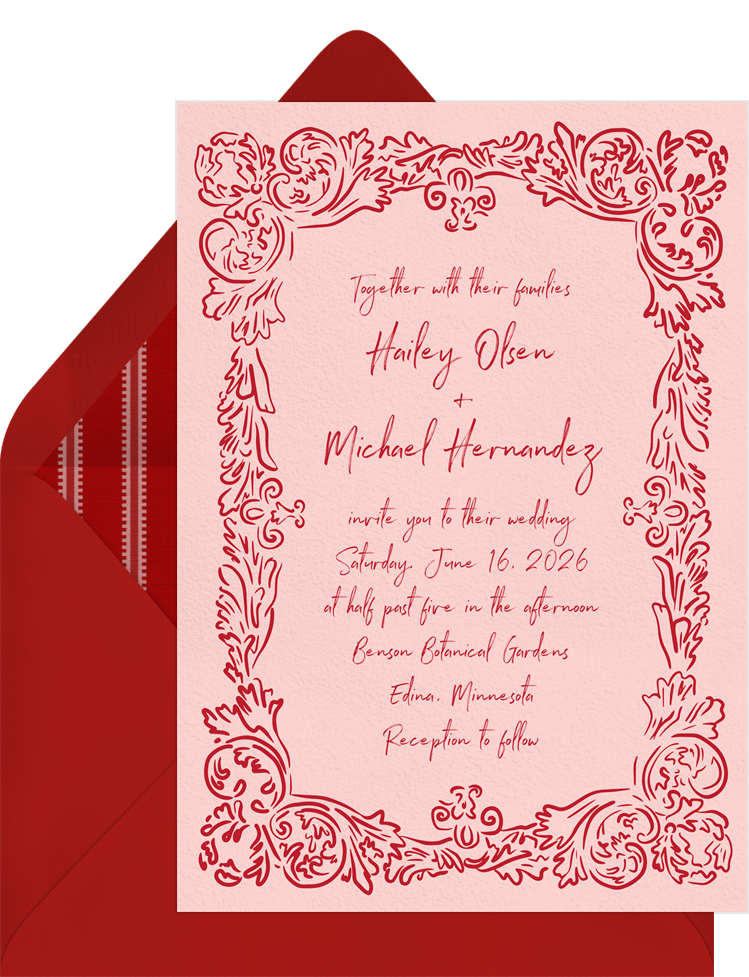 Together with their families
Hailey Olsen
+
Michael Hernandez
invite you to their wedding
Saturday, June 16, 2026
at half past five in the afternoon
Benson Botanical Gardens
Edina, Minnesota
Reception to follow